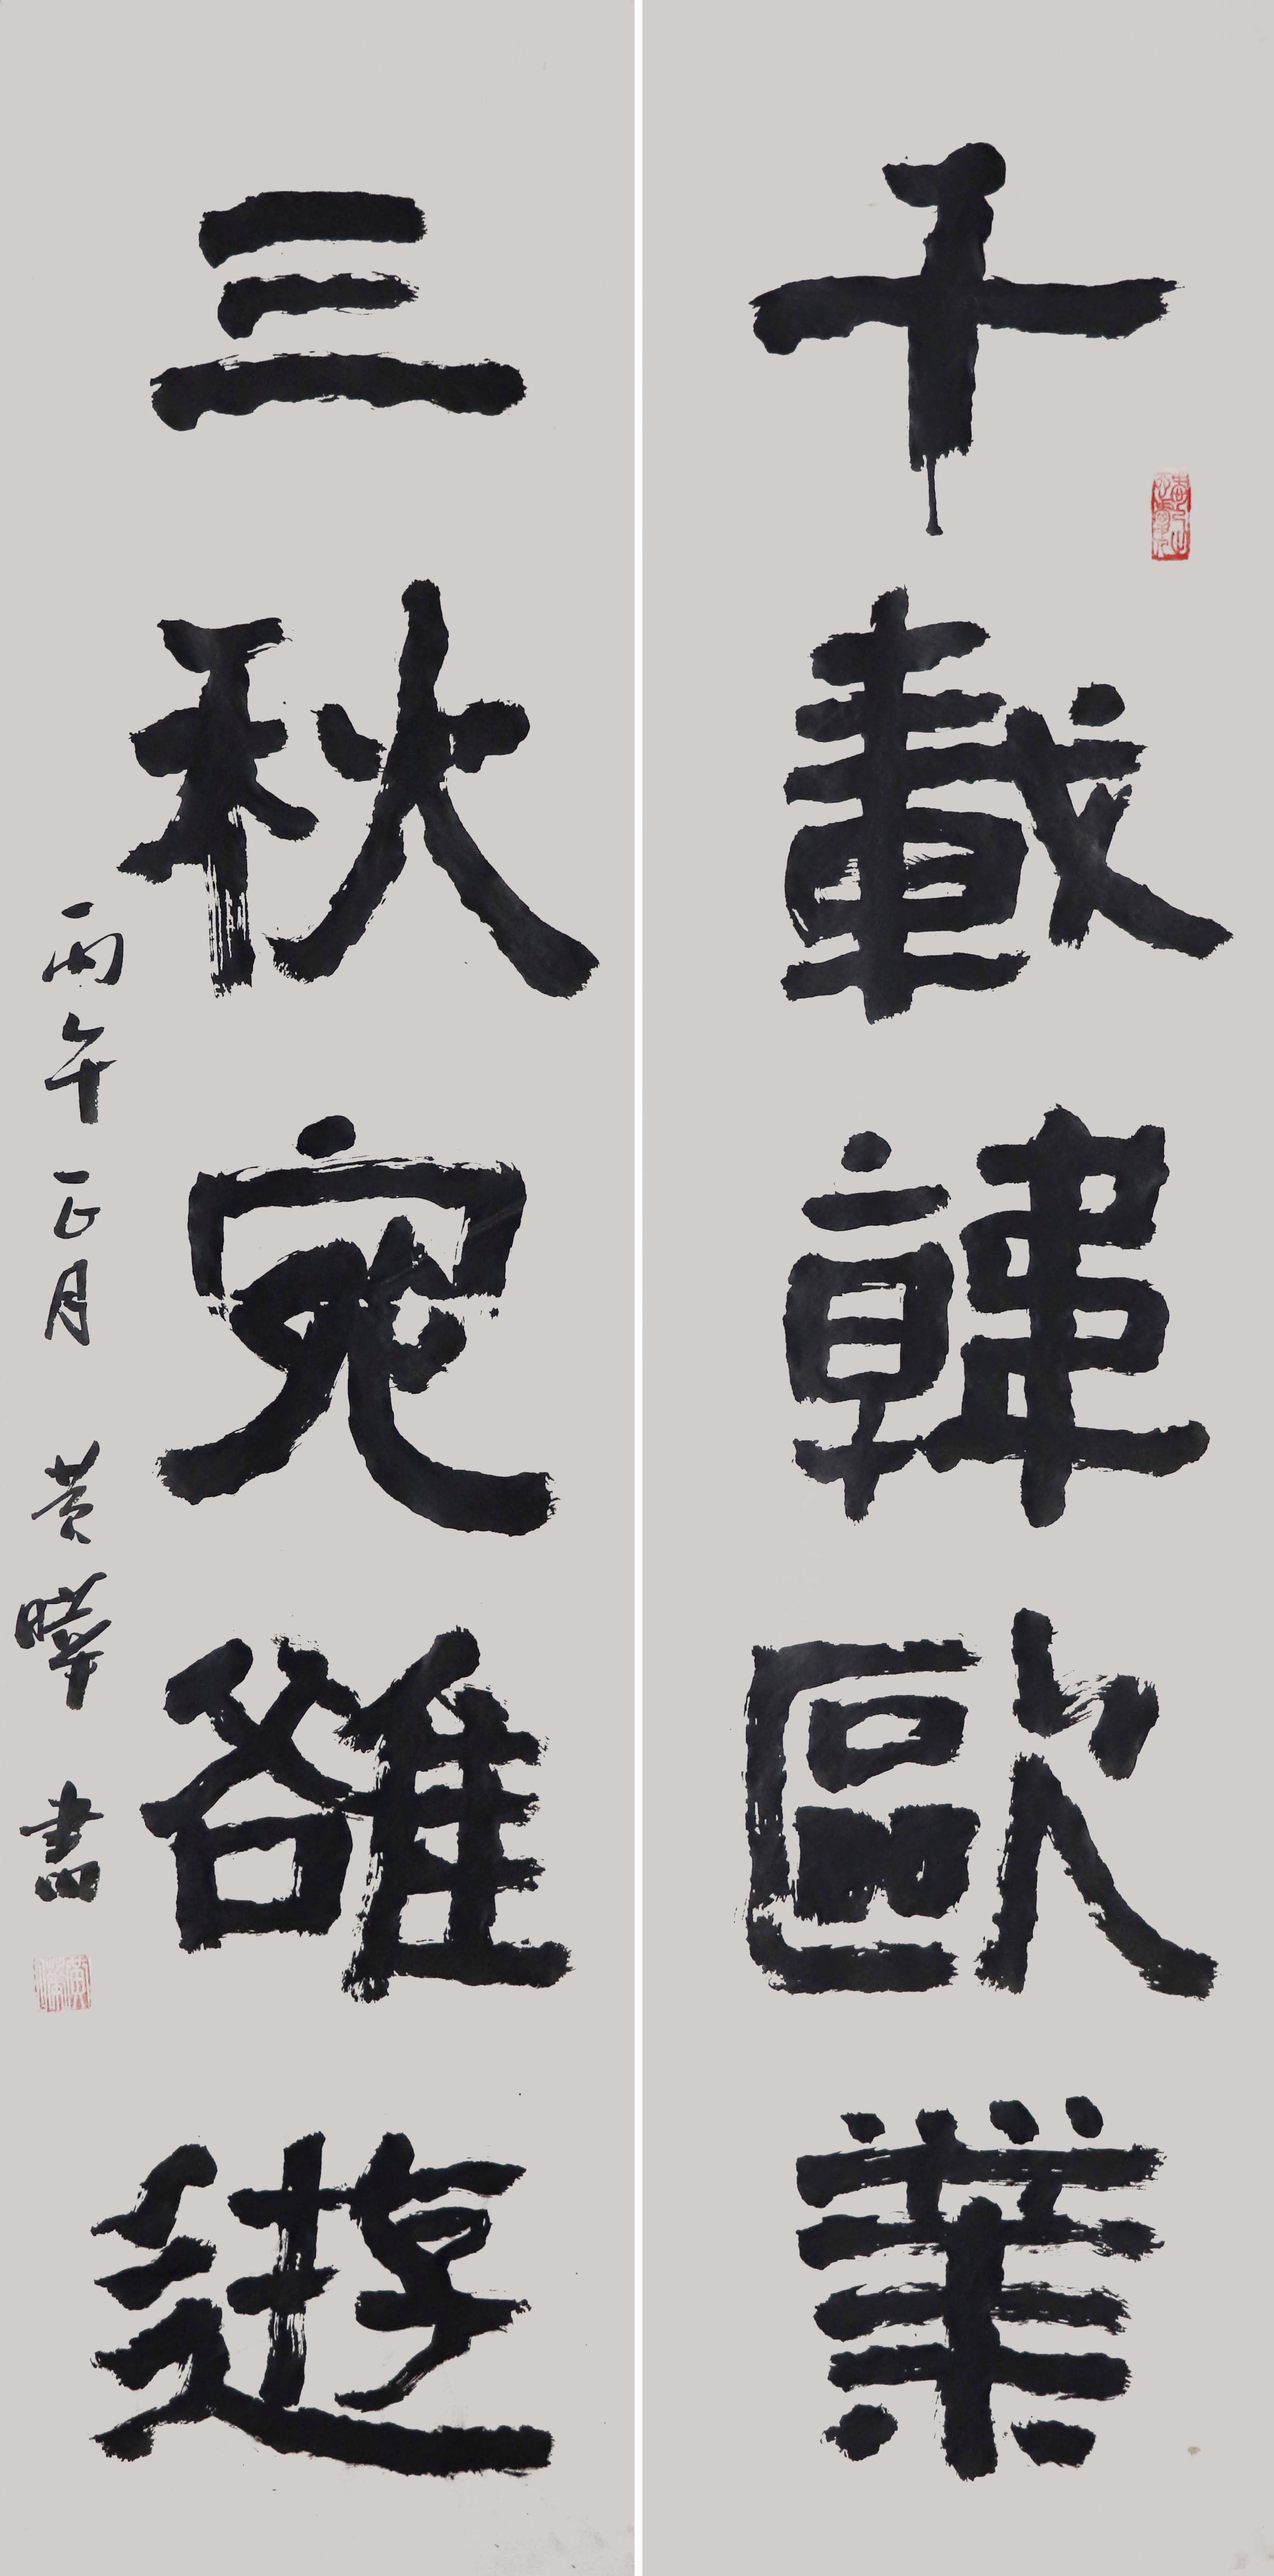 千載韓歐業
三秋宛雒遊
丙午正月 黄曄書